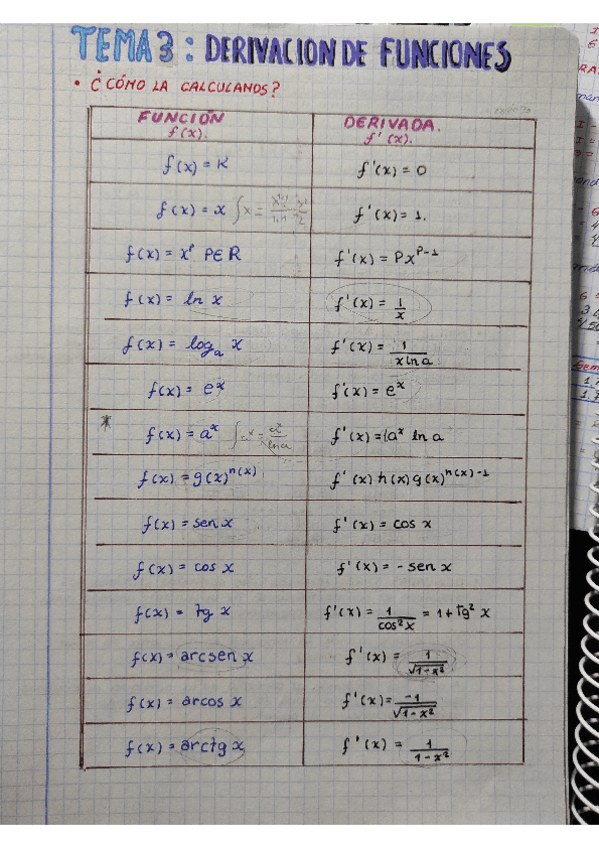 TEMA 3: DERIVACION DE FUNCIONES
• ¿CÓMO LA CALCULAMOS?
FUNCIÓN f(x). DERIVADA. f'(x).
f(x) = K f'(x) = 0
f(x) = x ∫x = f'(x) = 1.
f(x) = x^P P∈R f'(x) = Px^P-1
f(x) = ln x f'(x) = 1/x
f(x) = log_a x f'(x) = 1/(x ln a)
f(x) = e^x f'(x) = e^x
* f(x) = a^x ∫a^x = a^x/ln a f'(x) = a^x ln a
f(x) = g(x)^n(x) f'(x) h(x) g(x)^n(x)-1
f(x) = sen x f'(x) = cos x
f(x) = cos x f'(x) = - sen x
f(x) = tg x f'(x) = 1/cos² x = 1 + tg² x
f(x) = arcsen x f'(x) = 1/√1-x²
f(x) = arcos x f'(x) = -1/√1-x²
f(x) = arctg x f'(x) = 1/1-x²